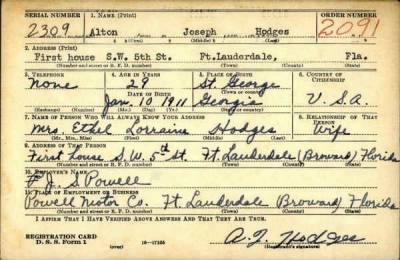 SERIAL NUMBER 1. NAME (Print) ORDER NUMBER
2309 Alton Joseph Hodges 2091
(First) (Middle) (Last)
2. ADDRESS (Print)
First house S.W. 5th St. Ft.Lauderdale, Fla.
(Number and street or R. F. D. number) (Town) (County) (State)
3. TELEPHONE 4. AGE IN YEARS 5. PLACE OF BIRTH 6. COUNTRY OF CITIZENSHIP
None 29 St. George
DATE OF BIRTH (Town or county)
Jan. 10 1911 Georgia U.S.A.
(Exchange) (Number) (Mo.) (Day) (Yr.) (State or country)
7. NAME OF PERSON WHO WILL ALWAYS KNOW YOUR ADDRESS 8. RELATIONSHIP OF THAT PERSON
Mrs. Ethel Lorraine Hodges Wife
(Mr., Mrs., Miss) (First) (Middle) (Last)
9. ADDRESS OF THAT PERSON
First house S.W. 5th St. Ft. Lauderdale (Broward) Florida
(Number and street or R. F. D. number) (Town) (County) (State)
10. EMPLOYER'S NAME
J. S. Powell
11. PLACE OF EMPLOYMENT OR BUSINESS
Powell Motor Co. Ft Lauderdale Broward) Florida
(Number and street or R. F. D. number) (Town) (County) (State)
I AFFIRM THAT I HAVE VERIFIED ABOVE ANSWERS AND THAT THEY ARE TRUE.
REGISTRATION CARD
D. S. S. Form 1 16-17105 A. J. Hodges
(Registrant's signature)